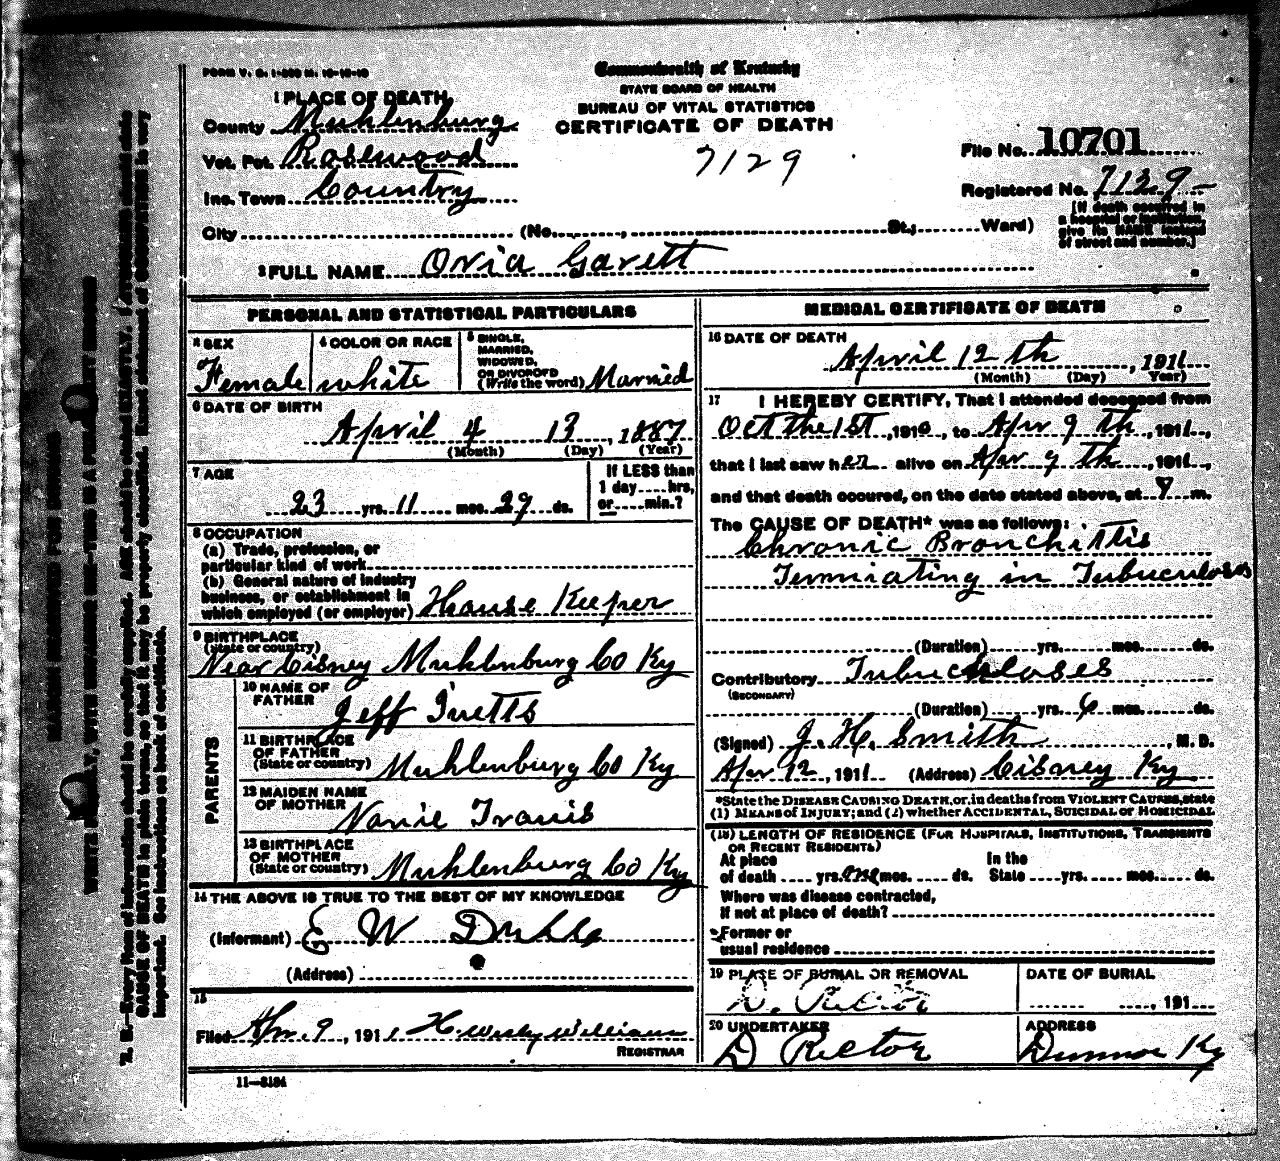 FORM V. S. 1-200 M. 10-10-10
Commonwealth of Kentucky
STATE BOARD OF HEALTH
BUREAU OF VITAL STATISTICS
CERTIFICATE OF DEATH
7129
1 PLACE OF DEATH
County Muhlenburg
Vot. Pct. Rosewood
Inc. Town Country
City (No. , St.; Ward)
File No. 10701
Registered No. 7129
[If death occurred in
a hospital or institution,
give its NAME instead
of street and number.]
2 FULL NAME Oria Garett
PERSONAL AND STATISTICAL PARTICULARS
3 SEX
Female
4 COLOR OR RACE
white
5 SINGLE,
MARRIED,
WIDOWED,
OR DIVORCED
(Write the word) Married
6 DATE OF BIRTH
April 4 13, 1887
(Month) (Day) (Year)
7 AGE
23 yrs. 11 mos. 29 ds.
If LESS than
1 day....hrs,
or....min.?
8 OCCUPATION
(a) Trade, profession, or
particular kind of work
(b) General nature of industry
business, or establishment in
which employed (or employer) House Keeper
9 BIRTHPLACE
(State or country)
Near Cisney Muhlenburg Co Ky
PARENTS
10 NAME OF
FATHER
Jeff
11 BIRTHPLACE
OF FATHER
(State or country) Muhlenburg Co Ky
12 MAIDEN NAME
OF MOTHER
Nanie Travis
13 BIRTHPLACE
OF MOTHER
(State or country) Muhlenburg Co Ky
14 THE ABOVE IS TRUE TO THE BEST OF MY KNOWLEDGE
(Informant) E W
(Address)
15
Filed Apr. 9, 1911 H. Wesly Williams
REGISTRAR
11-3184
MEDICAL CERTIFICATE OF DEATH
16 DATE OF DEATH
April 12 th, 1911
(Month) (Day) Year)
17 I HEREBY CERTIFY, That I attended deceased from
Oct the 1st, 1910, to Apr 9 th, 1911,
that I last saw her alive on Apr 9 th, 1911,
and that death occured, on the date stated above, at m.
The CAUSE OF DEATH* was as follows:
Chronic Bronchittis
Termiating in Tubuculoses
(Duration) yrs. mos. ds.
Contributory Tubuculoses
(SECONDARY)
(Duration) yrs. 6 mos. ds.
(Signed) J. H. Smith, M. D.
Apr 12, 1911 (Address) Cisney Ky
*State the DISEASE CAUSING DEATH, or, in deaths from VIOLENT CAUSES, state
(1) MEANS of INJURY; and (2) whether ACCIDENTAL, SUICIDAL or HOMICIDAL
(18) LENGTH OF RESIDENCE (FOR HOSPITALS, INSTITUTIONS, TRANSIENTS
OR RECENT RESIDENTS)
At place
of death yrs. one mos. ds.
In the
State yrs. mos. ds.
Where was disease contracted,
If not at place of death?
Former or
usual residence
19 PLACE OF BURIAL OR REMOVAL
D. Rector
DATE OF BURIAL
, 191
20 UNDERTAKER
D Rector
ADDRESS
Dunmor Ky
MARGIN RESERVED FOR BINDING
WRITE PLAINLY, WITH UNFADING INK—THIS IS A PERMANENT RECORD
N. B.—Every item of information should be carefully supplied. AGE should be stated EXACTLY. PHYSICIANS should state
CAUSE OF DEATH in plain terms, so that it may be properly classified. Exact statement of OCCUPATION is very
important. See instructions on back of certificate.